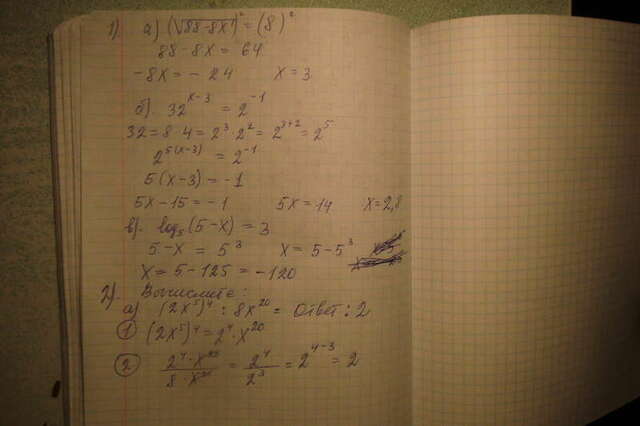 1) а) (√88-8x)² = (8)²
88-8x = 64
-8x = -24 x = 3
б). 32^(x-3) = 2^(-1)
32 = 8·4 = 2³·2² = 2^(3+2) = 2⁵
2^(5(x-3)) = 2^(-1)
5(x-3) = -1
5x-15 = -1 5x = 14 x = 2,8
в). log₅(5-x) = 3
5-x = 5³ x = 5-5³
x = 5-125 = -120
2). Вычислите:
а) (2x⁵)⁴ : 8x²⁰ = Ответ: 2
① (2x⁵)⁴ = 2⁴·x²⁰
② 2⁴·x²⁰ / 8·x²⁰ = 2⁴ / 2³ = 2^(4-3) = 2